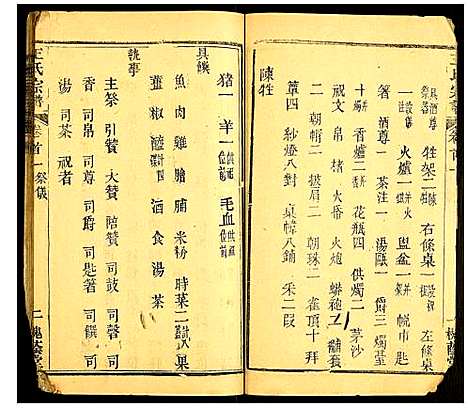 王氏宗譜 卷首一
具酒尊祭器 牲架二 右條桌一 左條桌
一 火爐一 盥盆一 帨巾一 匙
箸 酒尊一 茶注一 湯甌一 爵三 燭臺
十 花瓶四 供燭二 茅沙
祝文 帛 楮 大香 火炮 蟒袍
朝帽二 披肩二 朝珠二 雀頂十 拜
簟四 紗燈八對 桌幃八鋪 采二段
陳牲
猪一 羊一 毛血
具饌
魚 肉 雞 膾 脯 米粉 時菜二 菓
薑椒 鹽 酒 食 湯 茶
執事
主祭 引贊 大贊 陪贊 司鼓 司磬 司
香 司帛 司尊 司爵 司匙箸 司饌 司
湯 司茶 祝者
王氏宗譜 卷首一 祭儀 二 槐蔭堂